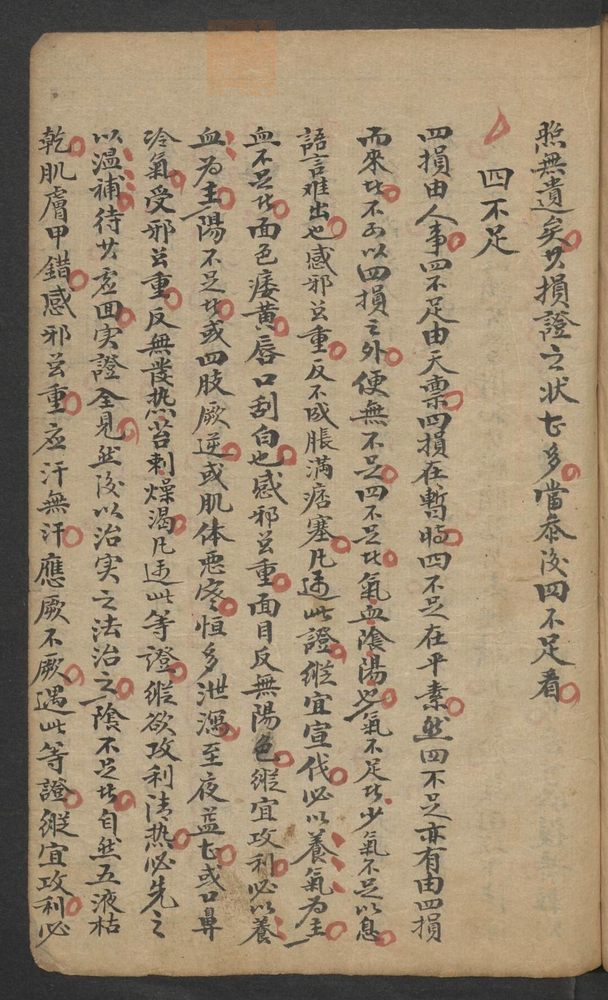 照無遺矣其損證之状甚多當叅後四不足看
四不足
四損由人事四不足由天禀四損在暫時四不足在平素然四不足亦有由四損
而來者不可以四損之外便無不足四不足者氣血陰陽也氣不足者少氣不足以息
語言难出也感邪𠀾重反不成脹滿痞塞凡遇此證縱宜宣伐必以養氣為主
血不足者面色痿黃唇口刮白也感邪𠀾重面目反無陽色縱宜攻利必以養
血為主陽不足者或四肢厥逆或肌体惡寒恒多泄瀉至夜益甚或口鼻
冷氣受邪𠀾重反無發热苔刺燥渴凡遇此等證縱欲攻利清热必先之
以溫補待其虛回实證全見然後以治实之法治之陰不足者自然五液枯
乾肌膚甲錯感邪𠀾重應汗無汗應厥不厥遇此等證縱宜攻利必